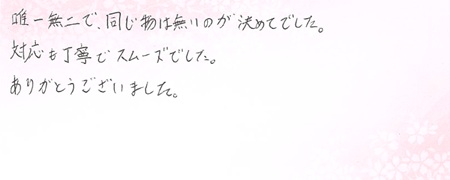 唯一無二で、同じ物は無いのが決めてでした。
対応も丁寧でスムーズでした。
ありがとうございました。